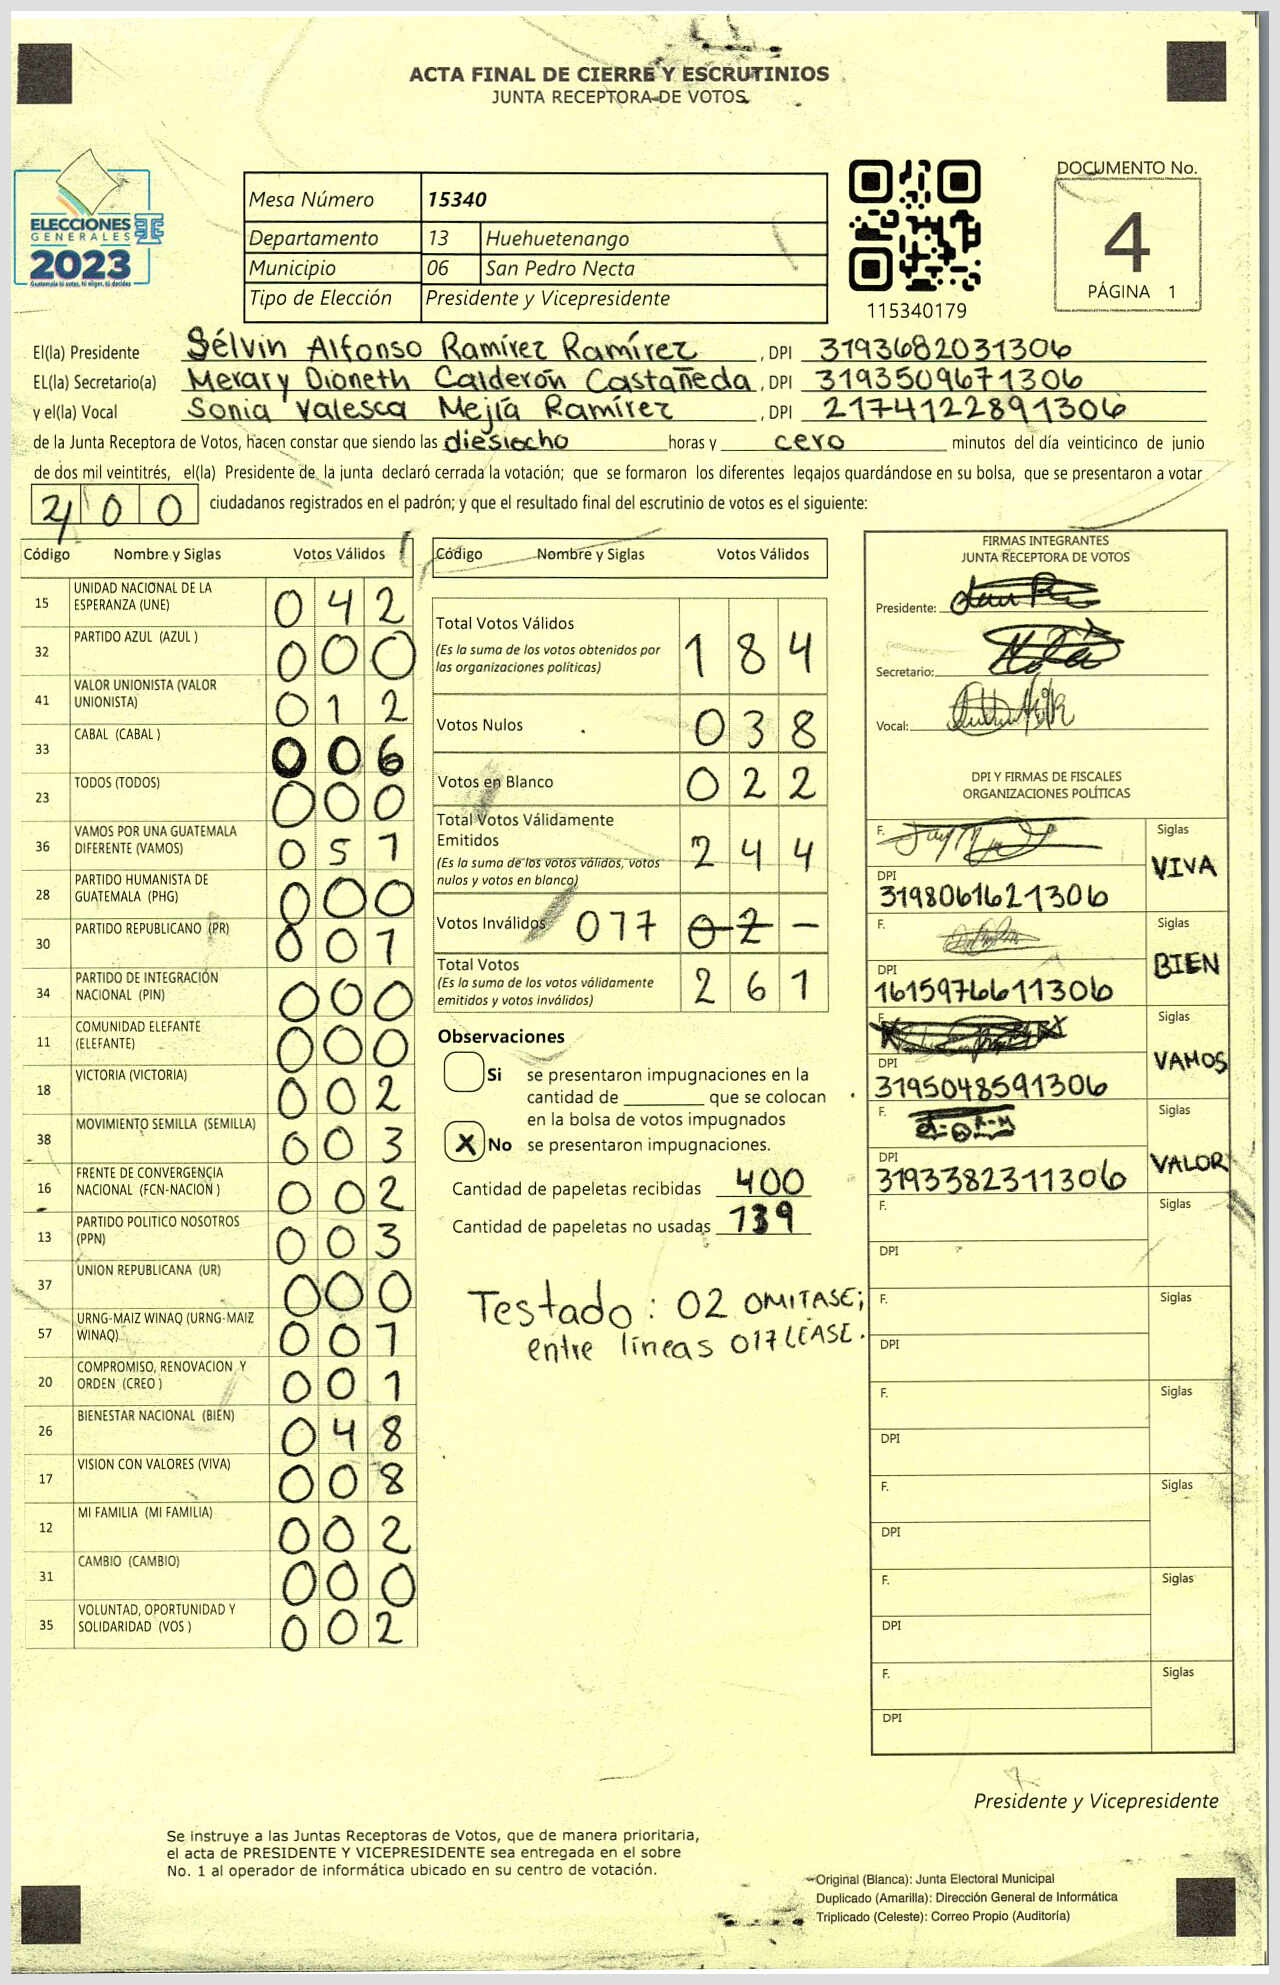 ACTA FINAL DE CIERRE Y ESCRUTINIOS
JUNTA RECEPTORA DE VOTOS
ELECCIONES
GENERALES
2023
Guatemala tú votas, tú eliges, tú decides
Mesa Número 15340
Departamento 13 Huehuetenango
Municipio 06 San Pedro Necta
Tipo de Elección Presidente y Vicepresidente
115340179
DOCUMENTO No.
4
PÁGINA 1
El(la) Presidente Sélvin Alfonso Ramírez Ramírez, DPI 3193682031306
EL(la) Secretario(a) Merary Dioneth Calderón Castañeda, DPI 3193509671306
y el(la) Vocal Sonia Valesca Mejía Ramírez, DPI 2174122891306
de la Junta Receptora de Votos, hacen constar que siendo las diesiocho horas y cero minutos del día veinticinco de junio
de dos mil veintitrés, el(la) Presidente de la junta declaró cerrada la votación; que se formaron los diferentes legajos quardándose en su bolsa, que se presentaron a votar
400 ciudadanos registrados en el padrón; y que el resultado final del escrutinio de votos es el siguiente:
Código Nombre y Siglas Votos Válidos
15 UNIDAD NACIONAL DE LA
ESPERANZA (UNE) 042
32 PARTIDO AZUL (AZUL ) 000
41 VALOR UNIONISTA (VALOR
UNIONISTA) 012
33 CABAL (CABAL ) 006
23 TODOS (TODOS) 000
36 VAMOS POR UNA GUATEMALA
DIFERENTE (VAMOS) 051
28 PARTIDO HUMANISTA DE
GUATEMALA (PHG) 000
30 PARTIDO REPUBLICANO (PR) 001
34 PARTIDO DE INTEGRACIÓN
NACIONAL (PIN) 000
11 COMUNIDAD ELEFANTE
(ELEFANTE) 000
18 VICTORIA (VICTORIA) 002
38 MOVIMIENTO SEMILLA (SEMILLA) 003
16 FRENTE DE CONVERGENCIA
NACIONAL (FCN-NACION ) 002
13 PARTIDO POLITICO NOSOTROS
(PPN) 003
37 UNION REPUBLICANA (UR) 000
57 URNG-MAIZ WINAQ (URNG-MAIZ
WINAQ) 001
20 COMPROMISO, RENOVACION Y
ORDEN (CREO ) 001
26 BIENESTAR NACIONAL (BIEN) 048
17 VISION CON VALORES (VIVA) 008
12 MI FAMILIA (MI FAMILIA) 002
31 CAMBIO (CAMBIO) 000
35 VOLUNTAD, OPORTUNIDAD Y
SOLIDARIDAD (VOS ) 002
Código Nombre y Siglas Votos Válidos
Total Votos Válidos
(Es la suma de los votos obtenidos por
las organizaciones políticas) 184
Votos Nulos 038
Votos en Blanco 022
Total Votos Válidamente
Emitidos
(Es la suma de los votos válidos, votos
nulos y votos en blanco) 244
Votos Inválidos 017 02 -
Total Votos
(Es la suma de los votos válidamente
emitidos y votos inválidos) 261
Observaciones
Si se presentaron impugnaciones en la
cantidad de ________ que se colocan
en la bolsa de votos impugnados
X No se presentaron impugnaciones.
Cantidad de papeletas recibidas 400
Cantidad de papeletas no usadas 139
Testado: 02 OMITASE;
entre líneas 017 LEASE.
FIRMAS INTEGRANTES
JUNTA RECEPTORA DE VOTOS
Presidente:
Secretario:
Vocal:
DPI Y FIRMAS DE FISCALES
ORGANIZACIONES POLÍTICAS
F. Siglas
DPI VIVA
3198061621306
F. Siglas
DPI BIEN
1615976611306
F. Siglas
DPI VAMOS
3195048591306
F. Siglas
DPI VALOR
3193382311306
F. Siglas
DPI
F. Siglas
DPI
F. Siglas
DPI
F. Siglas
DPI
F. Siglas
DPI
F. Siglas
DPI
Presidente y Vicepresidente
Se instruye a las Juntas Receptoras de Votos, que de manera prioritaria,
el acta de PRESIDENTE Y VICEPRESIDENTE sea entregada en el sobre
No. 1 al operador de informática ubicado en su centro de votación.
Original (Blanca): Junta Electoral Municipal
Duplicado (Amarilla): Dirección General de Informática
Triplicado (Celeste): Correo Propio (Auditoría)